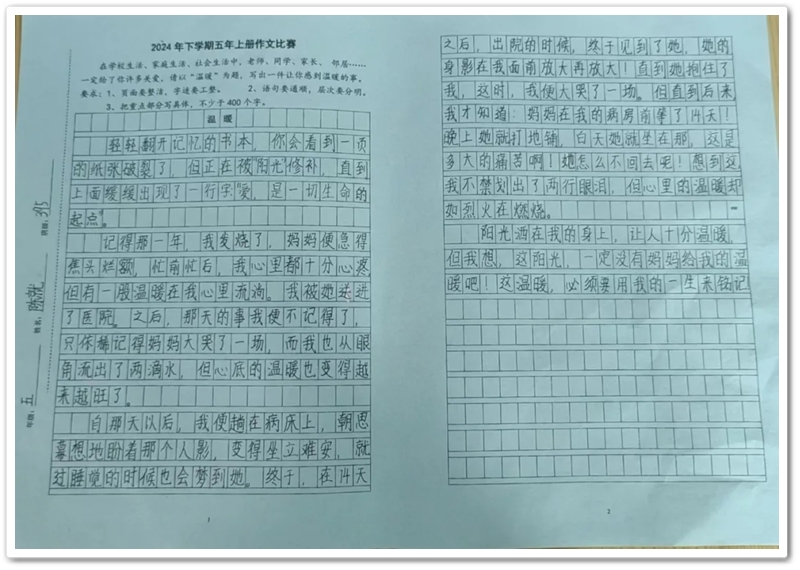 2024年下学期五年上册作文比赛
在学校生活、家庭生活、社会生活中，老师、同学、家长、邻居……
一定给了你许多关爱。请以“温暖”为题，写出一件让你感到温暖的事。
要求：1、页面要整洁，字迹要工整。 2、语句要通顺，层次要分明。
3、把重点部分写具体，不少于400个字。
温 暖
轻轻翻开记忆的书本，你会看到一页
的纸张破裂了，但正在被“阳光”修补，直到
上面缓缓出现了一行字：“爱，是一切生命的
起点。”
记得那一年，我发烧了，妈妈便急得
焦头烂额，忙前忙后，我心里都十分心疼，
但有一股温暖在我心里流淌。我被她送进
了医院。之后，那天的事我便不记得了，
只依稀记得妈妈大哭了一场，而我也从眼
角流出了两滴水，但心底的温暖也变得越
来越旺了。
自那天以后，我便趟在病床上，朝思
暮想地盼着那个人影，变得坐立难安，就
过睡觉的时候也会梦到她。终于，在14天
1
之后，出院的时候，终于见到了她，她的
身影在我面前放大再放大！直到她抱住了
我，这时，我便大哭了一场。但直到后来，
我才知道：妈妈在我的病房前举了14天！
晚上她就打地铺，白天她就坐在那，这是
多大的痛苦啊！她怎么不回去呢！想到这
我不禁划出了两行眼泪，但心里的温暖却
如烈火在燃烧。
阳光洒在我的身上，让人十分温暖，
但我想，这阳光，一定没有妈妈给我的温
暖吧！这温暖，必须要用我的一生来铭记
2
年级：五
姓名：
班级：395